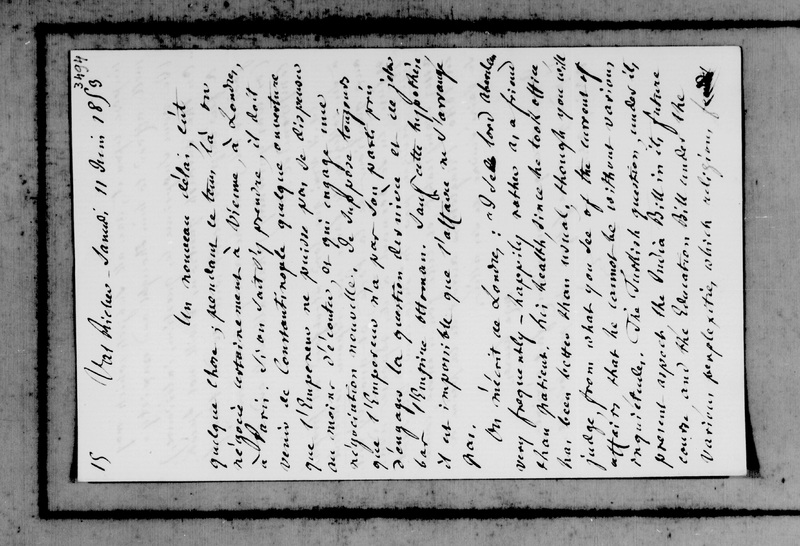 3494
15 Val Richer - Samedi 11 Juin 1853
Un nouveau délai, c'est
quelque chose ; pendant ce tems là on
négocie certainement à Vienne, à Londres,
à Paris. Si on sait s'y prendre, il doit
venir de Constantinople quelque ouverture
que l'Empereur ne puisse pas se dispenser
au moins d'écouter, et qui engage une
négociation nouvelle. Je suppose toujours
que l'Empereur n'a pas son parti pris
d'engager la question dernière et de jeter
bas l'Empire ottoman. Sauf cette hypothèse
il est impossible que l'affaire ne s'arrange
pas.
On m'écrit de Londres : "I see lord Aberdeen
very frequently - happily rather as a friend
than patient. his health since he took office
has been better than usual, though you will
judge, from what you see of the current of
affairs that he cannot be without various
inquietudes. The Turkish question, under its
present aspect the India Bill in its future
course and the Education Bill under the
various perplexities which religious